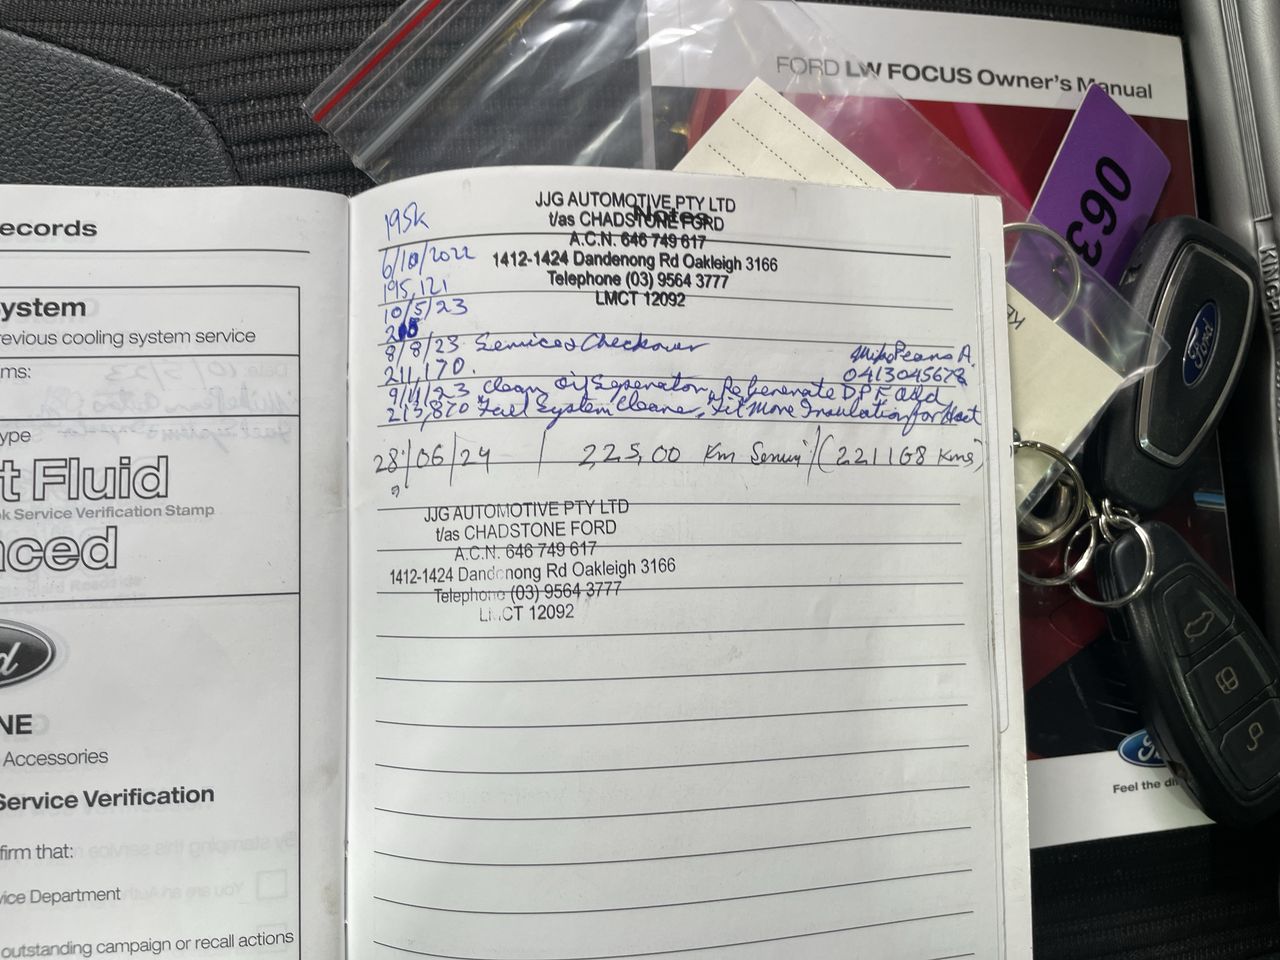 FORD LW FOCUS Owner's Manual
063
Ford
Feel the di
ecords
ystem
revious cooling system service
ms:
ype
t Fluid
k Service Verification Stamp
ced
NE
Accessories
Service Verification
firm that:
vice Department
outstanding campaign or recall actions
Notes
JJG AUTOMOTIVE PTY LTD
t/as CHADSTONE FORD
A.C.N. 646 749 617
1412-1424 Dandenong Rd Oakleigh 3166
Telephone (03) 9564 3777
LMCT 12092
195k
6/10/2022
195,121
10/5/23
8/8/23 Service & Checkover
211,170.
0413045678
9/11/23 Clean Oil Seperator, Regenerate DPF Add
213,870 Fuel System Cleaner, Fit More Insulation for Heat
28/06/24 / 225,00 Km Service (221168 Kms)
JJG AUTOMOTIVE PTY LTD
t/as CHADSTONE FORD
A.C.N. 646 749 617
1412-1424 Dandenong Rd Oakleigh 3166
Telephone (03) 9564 3777
LMCT 12092